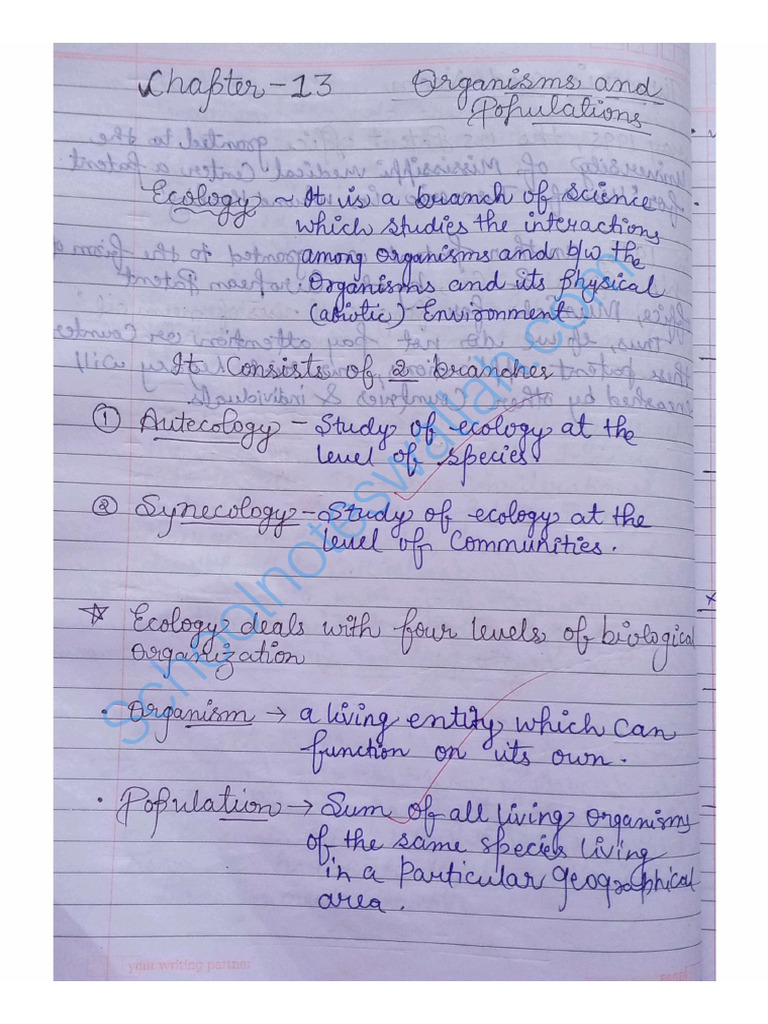 Chapter-13 Organisms and
Populations
Ecology ~ It is a branch of science
which studies the interactions
among organisms and b/w the
Organisms and its physical
(abiotic) Environment
It Consists of 2 branches
① Autecology - Study of ecology at the
level of species
② Synecology - Study of ecology at the
level of Communities.
☆ Ecology deals with four levels of biological
Organization
· Organism → a living entity which can
function on its own.
· Population → Sum of all living organisms
of the same species living
in a particular geographical
area.
your writing partner